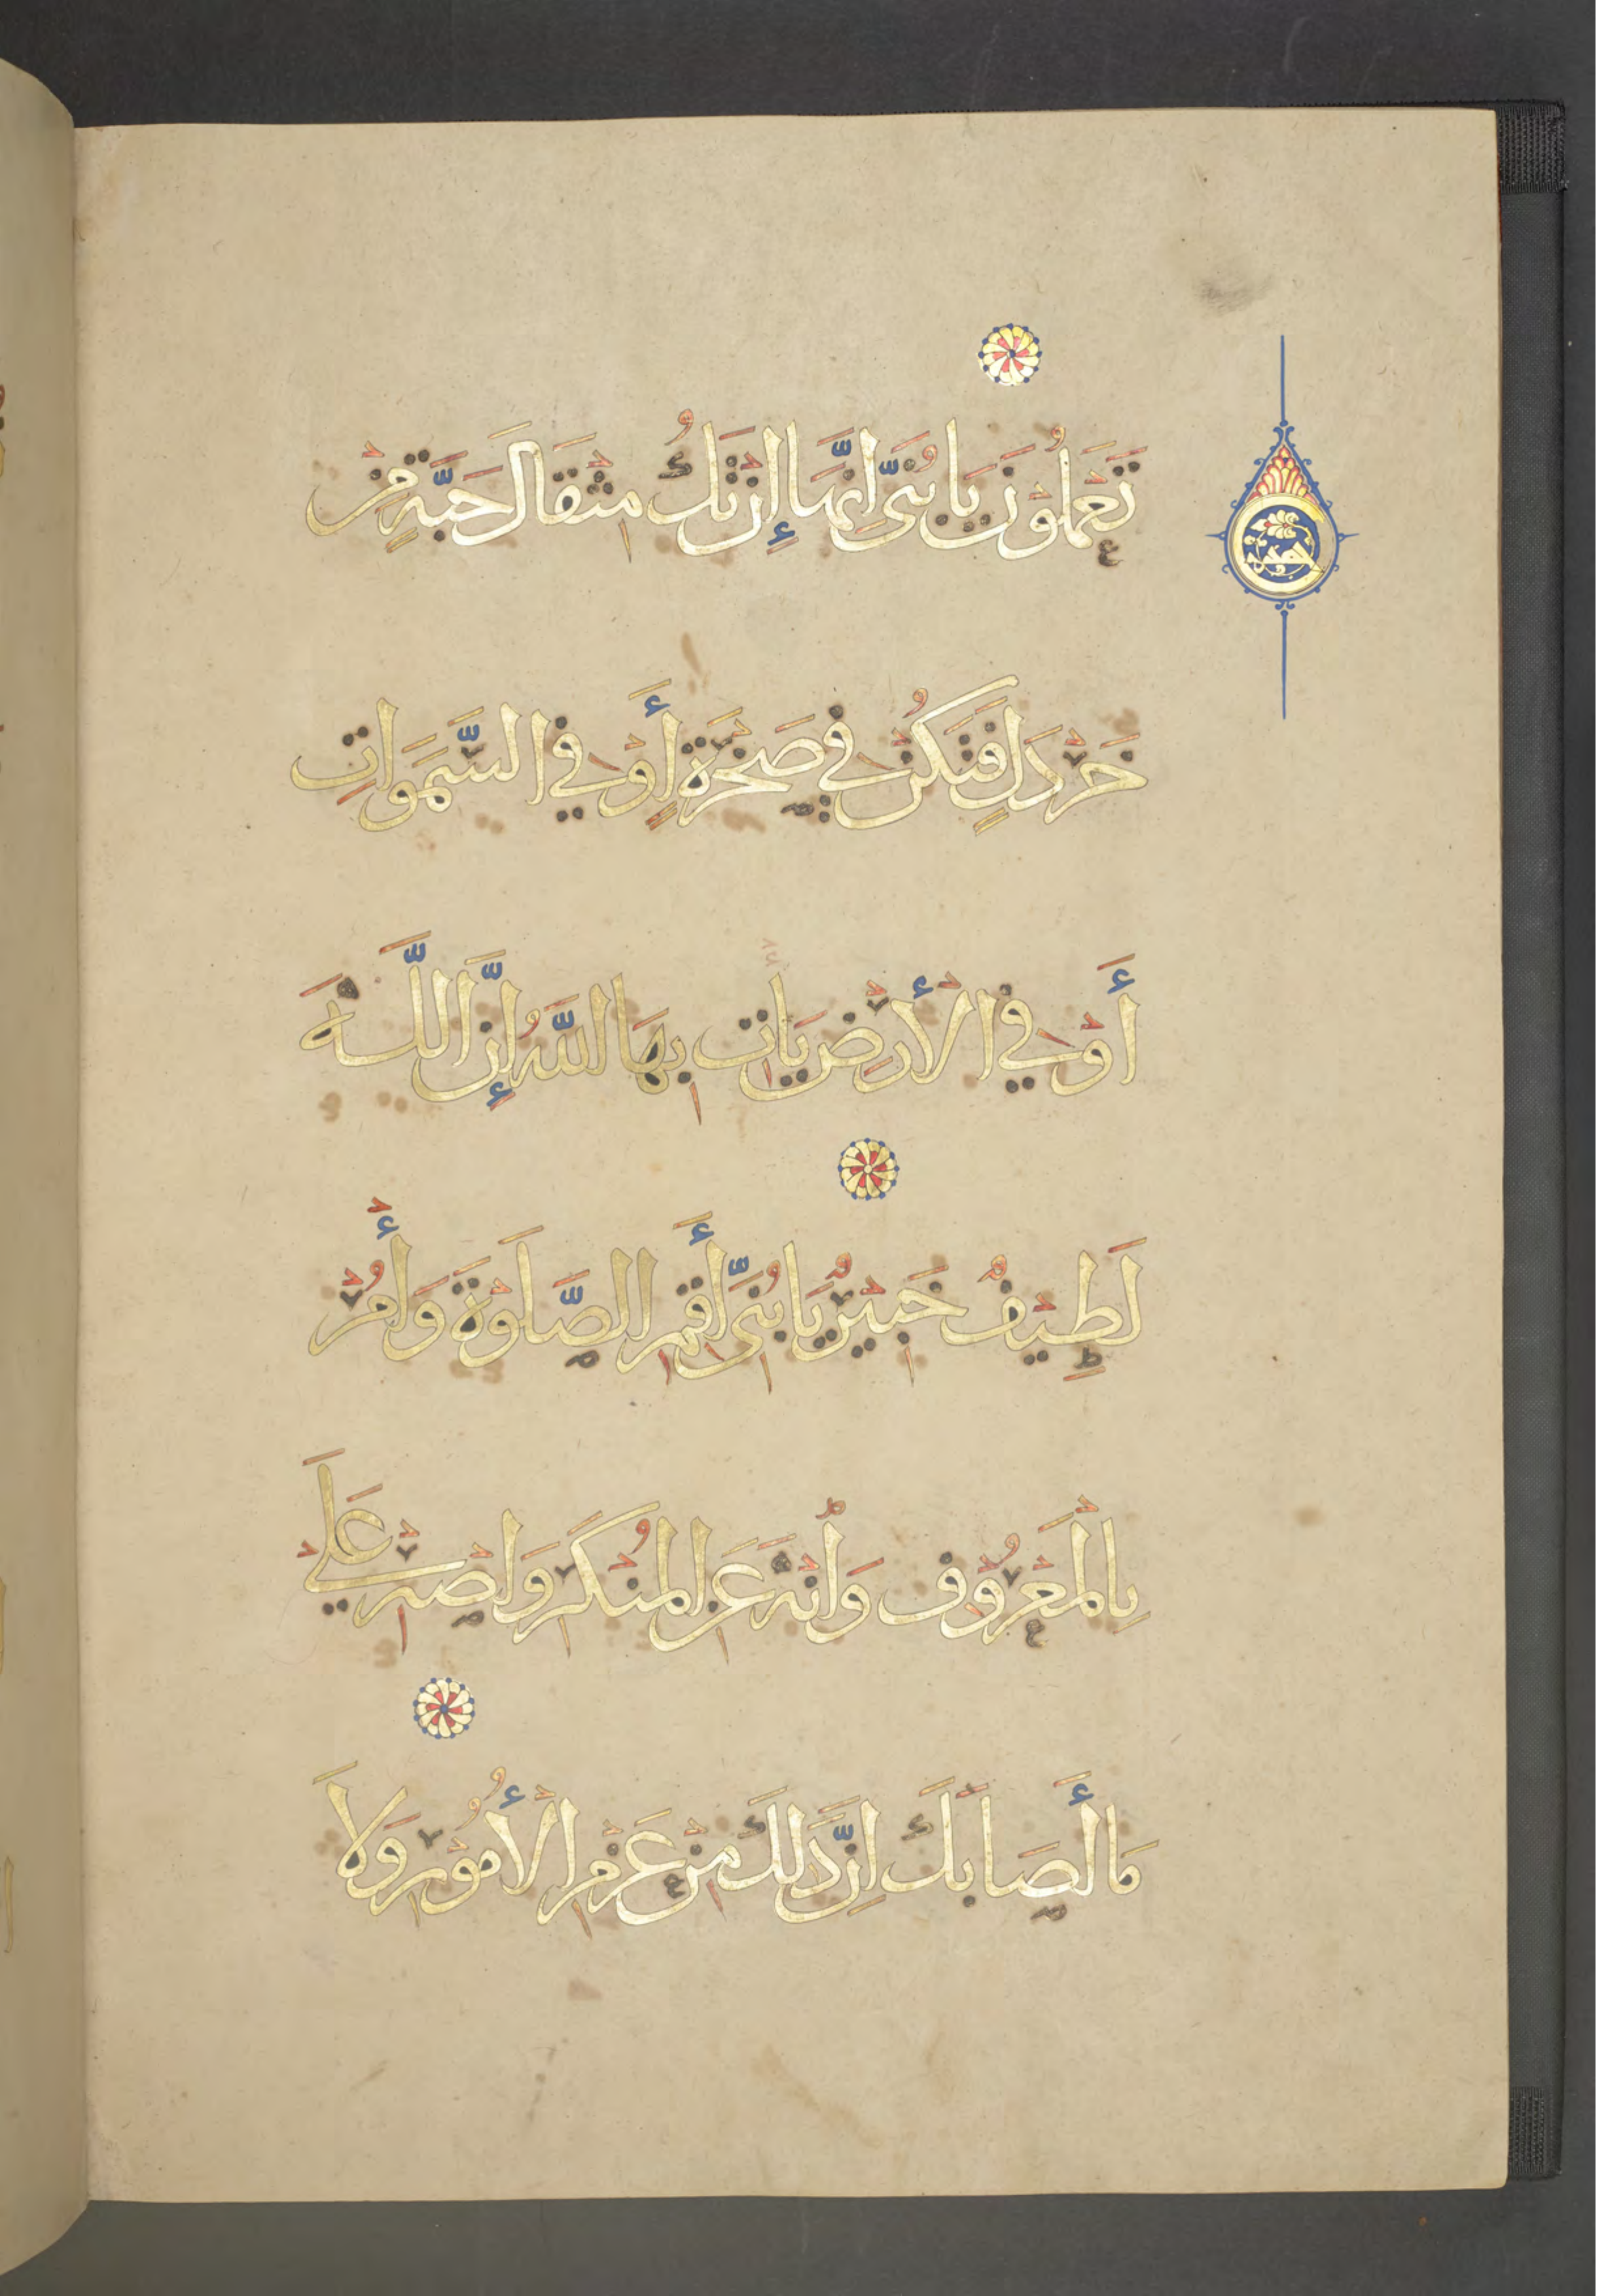 تَعْمَلُوْنَ يَا بُنَىَّ اِنَّهَا إِنْ تَكُ مِثْقَالَ حَبَّةٍ مِنْ
خَرْدَلٍ فَتَكُنْ فِي صَخْرَةٍ أَوْ فِي السَّمَوَاتِ
أَوْ فِي الْأَرْضِ يَأْتِ بِهَا اللَّهُ إِنَّ اللَّهَ
لَطِيْفٌ خَبِيْرٌ يَا بُنَىَّ أَقِمِ الصَّلَوْةَ وَأْمُرْ
بِالْمَعْرُوْفِ وَانْهَ عَنِ الْمُنْكَرِ وَاصْبِرْ عَلَي
مَا أَصَابَكَ اِنَّ ذَلِكَ مِنْ عَزْمِ الْأُمُوْرِ وَلَا